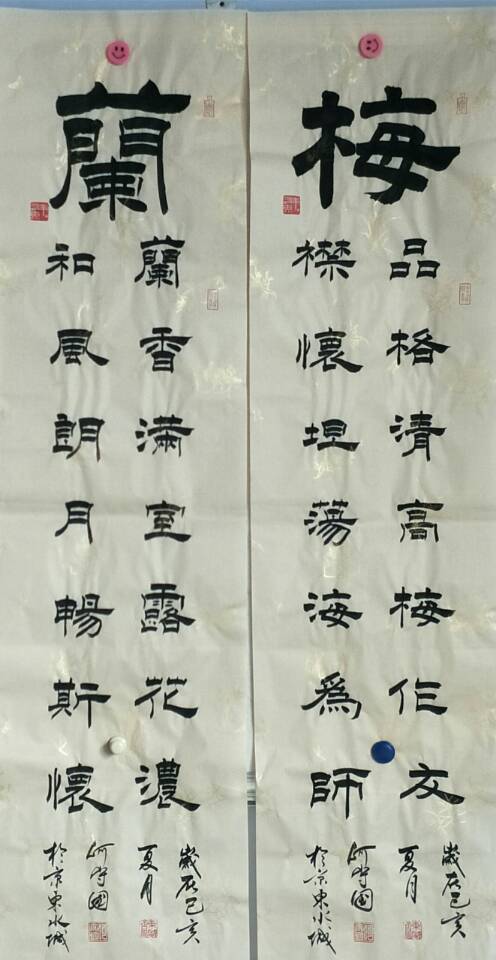 梅
品格清高梅作友
襟懷坦蕩海為師
歲在己亥
夏月
何守國
於京東水城
蘭
蘭香滿室露花濃
和風朗月暢斯懷
歲在己亥
夏月
何守國
於京東水城